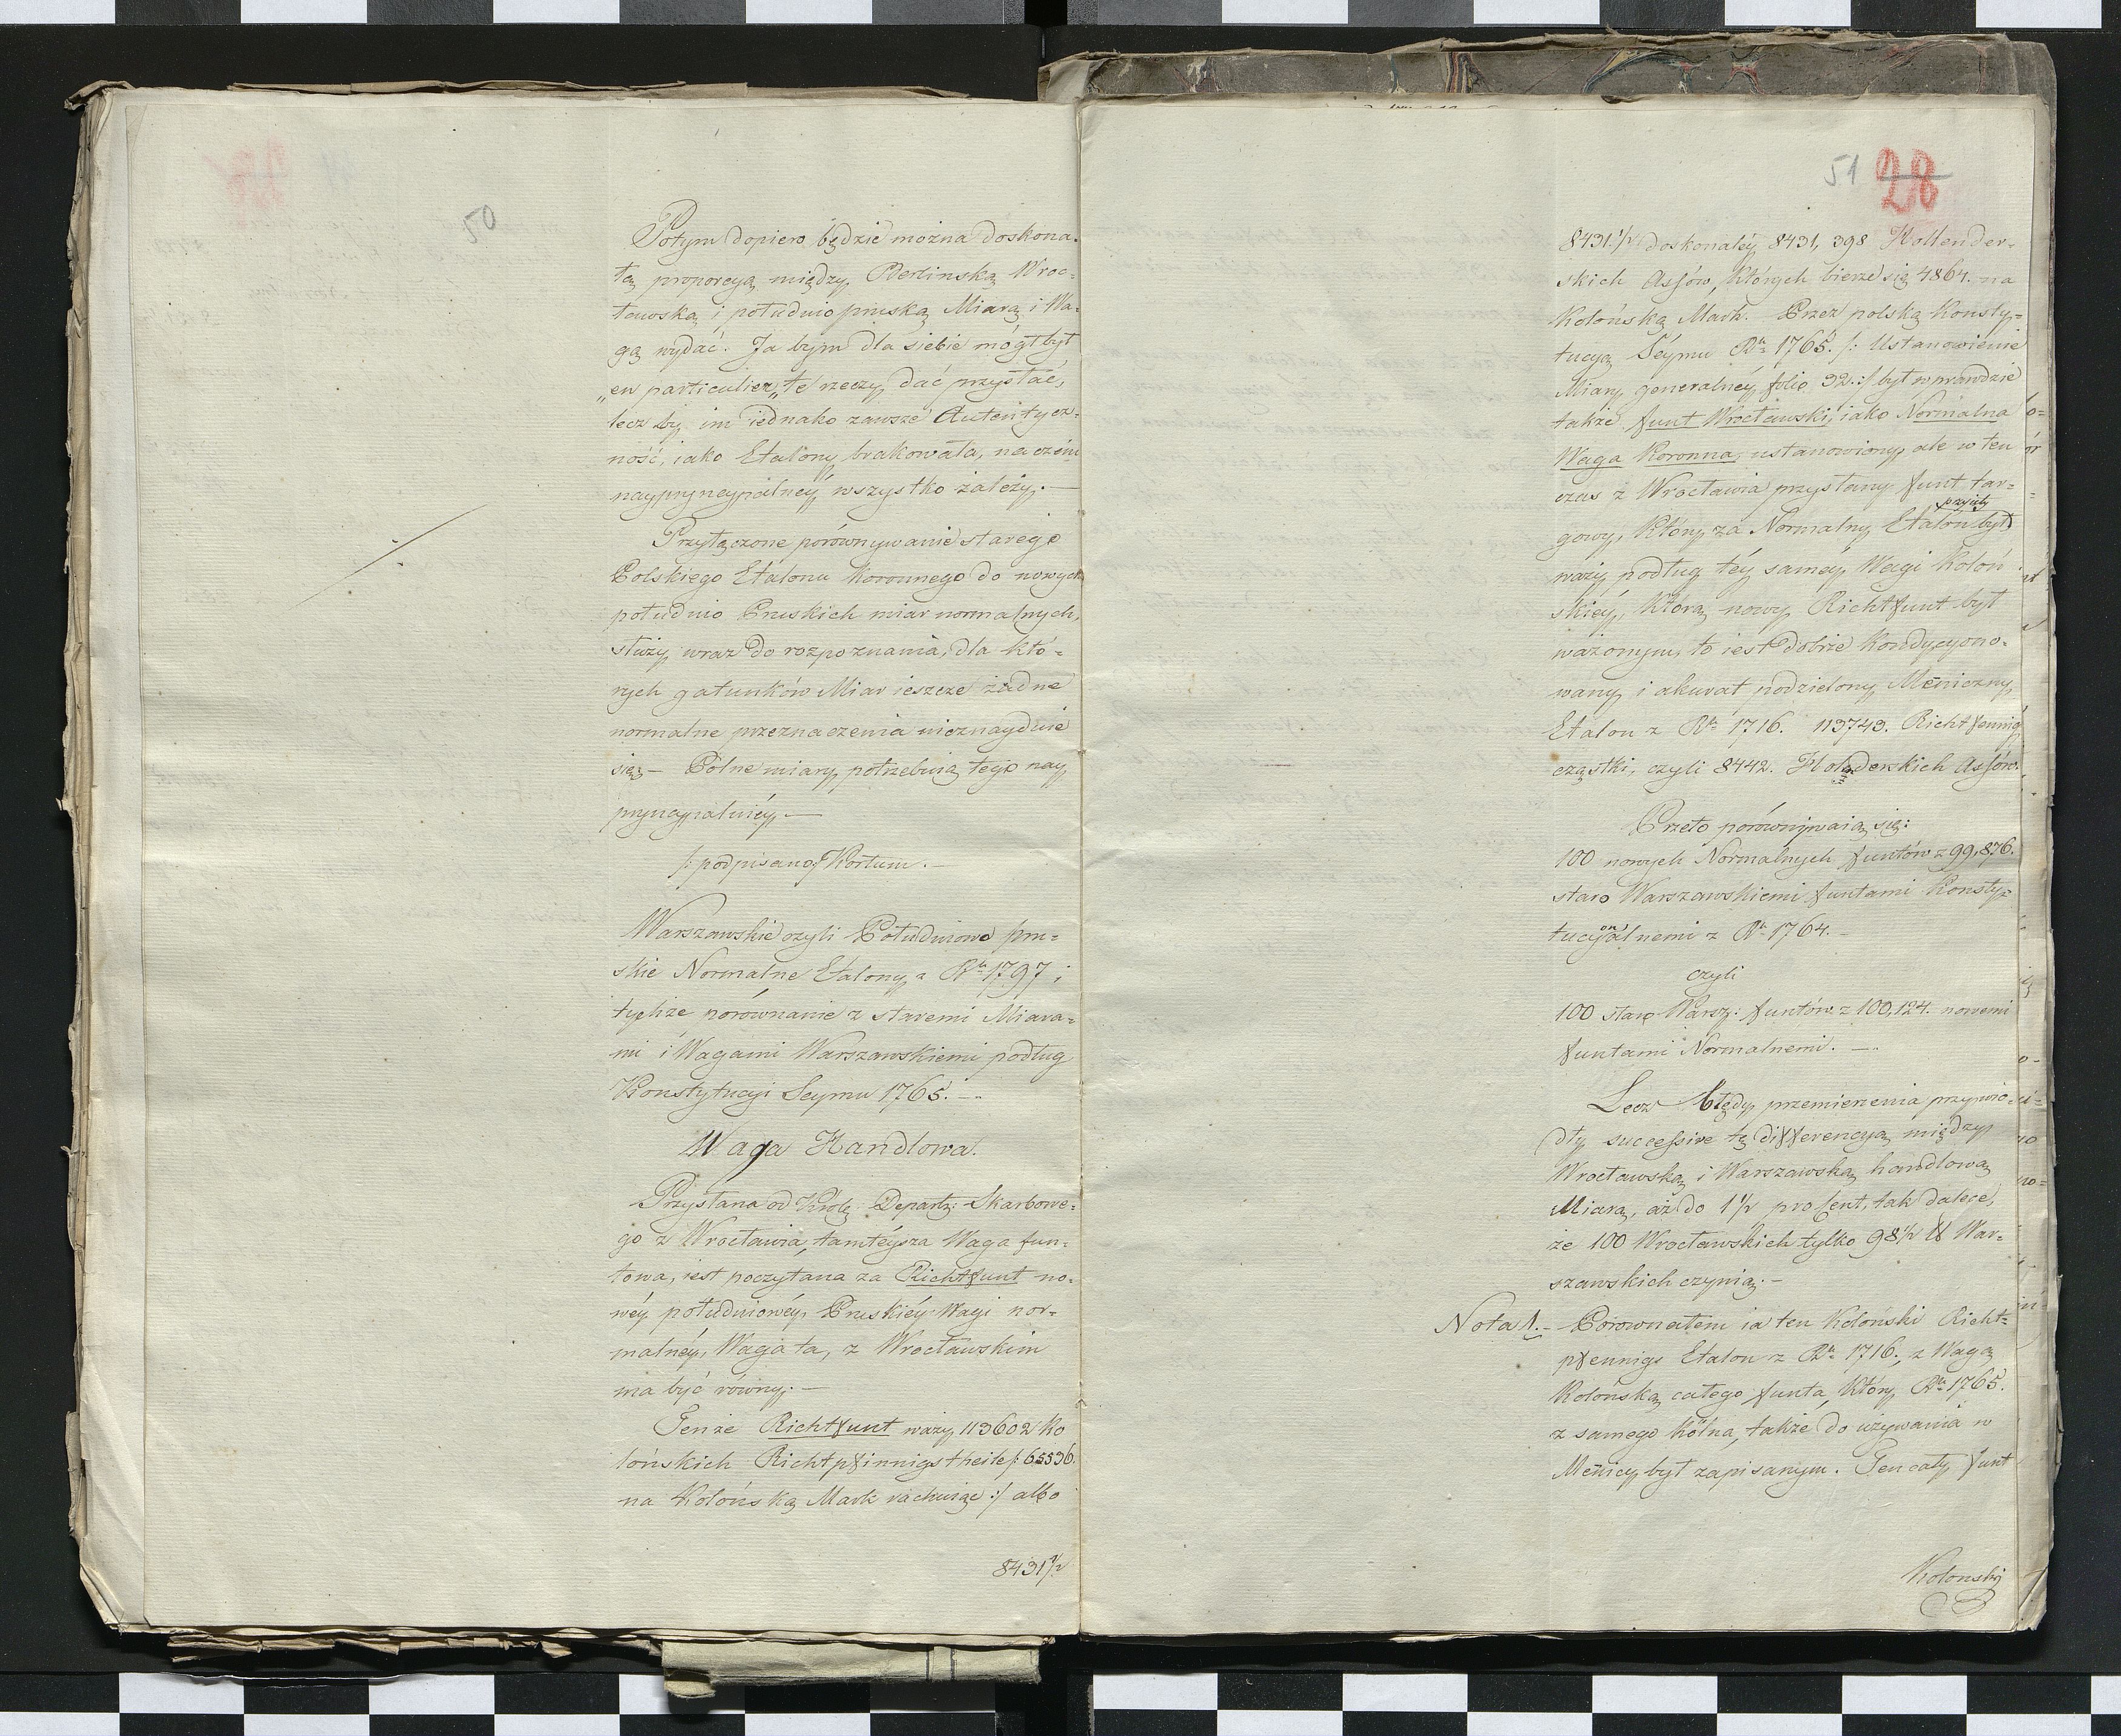 50
Potym dopiero będzie można doskona-
łą proporcyą między Berlinską Wroc-
ławską i południo pruską Miarą i Wa-
gą wydać. Ja bym dla siebie mógł był
„en particulier„ te rzeczy dać przysłać,
lecz by im iednako zawsze Autentycz-
ność, iako Etalony brakowała, na czém
naypryncypalnéy wszystko zależy. —
Przyłączone porównywanie starego
Polskiego Etalonu Koronnego do nowych
południo Pruskich miar normalnych,
służy wraz do rozpoznania, dla któ-
rych gatunków Miar ieszcze żadne
normalne przeznaczenia nieznayduie
się; — Polne miary potrzebuią tego nay
pryncypalniéy. —
/: podpisano:/ Kortum. —
Warszawskie czyli Południowo pru-
skie Normalne Etalony z Rku 1797 i
tychże porównanie z staremi Miara-
mi i Wagami Warszawskiemi podług
Konstytucyi Seymu 1765. —
Waga Handlowa.
Przysłana od Królę: Departz: Skarbowe-
go z Wrocławia, tamtéysza Waga fun-
towa, iest poczytana za Richtfunt no-
wéy południowéy Pruskiéy Wagi nor-
malnéy, Waga ta, z Wrocławskim
ma być równy. —
Tenże Richtfunt waży 113602 Ko
lońskich Richtpfinnigstheile /: 65536.
na Kolońską Mark rachuiąc :/ albo
8431 1/2
51 28
8431 1/2 doskonaléy 8431, 398 Hollender-
skich Assów, których bierze się 4864. na
Kolońską Mark. Przez polską Konsty-
tucyą Séymu Rku 1765. /: Ustanowienie
Miary generalnéy folio 32. :/ był wprawdzie
także funt Wrocławski, iako Normalna
Waga Koronna, ustanowiony, ale w ten
czas z Wrocławia przysłany funt tar-
przyięty
gowy, który za Normalny Etalon był
waży podług téy saméy Wagi Koloń
skiéy, którą nowy Richtfunt był
ważonym, to iest dobrze Kondycyono-
wany i akurat podzielony Meniczny
Etalon z Rku 1716. 113743. Richtfennig
cząstki, czyli 8442. Holęderskich Assów.
Przeto porównywaią się:
100 nowych Normalnych funtów z 99,876.
staro Warszawskiemi funtami Konsty-
tucyonalnemi z Rku 1764. —
czyli
100 staro Warsz: funtów z 100,124. nowemi
funtami Normalnemi. —
Lecz błędy przemierzenia przywio-
dły successive tę differencyą między
Wrocławską i Warszawską handlową
Miarą, aż do 1 1/2 procent, tak dalece,
że 100 Wrocławskich tylko 98 1/2 ℔ War-
szawskich czynią. —
Nota 1. — Porownałem ia ten Koloński Richt-
pfennigs Etalon z Rku 1716., z Wagą
Kolońską całego funta, który Rku 1765.
z samego Kolna, także do używania w
Menicy był zapisanym. Ten cały funt
Kolonski